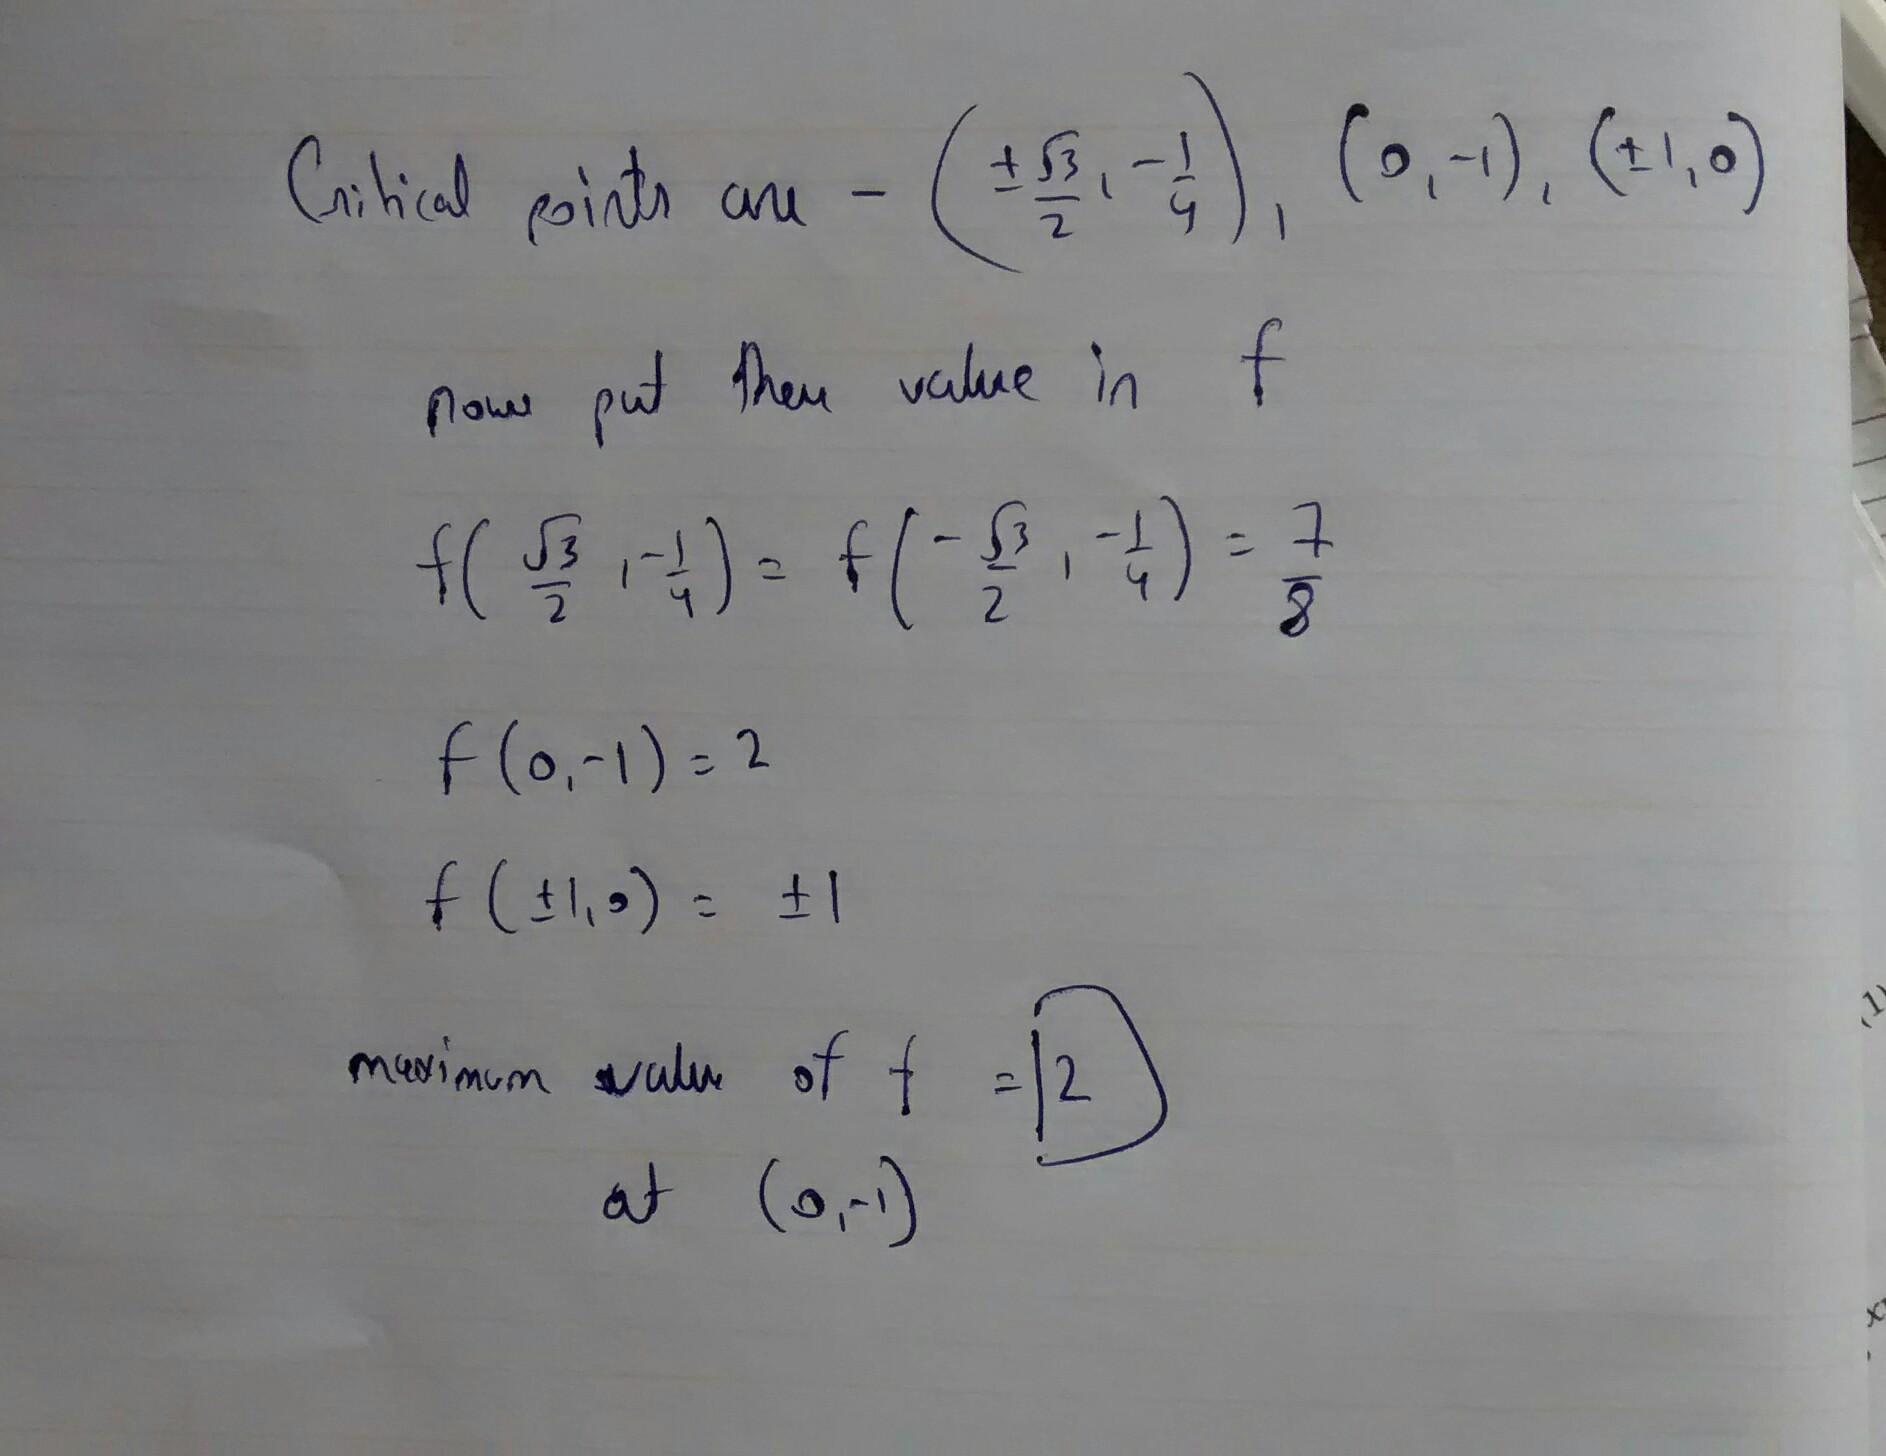 Critical points are - (±√3/2, -1/4), (0,-1), (±1,0)
now put these value in f
f(√3/2, -1/4) = f(-√3/2, -1/4) = 7/8
f(0,-1) = 2
f(±1,0) = ±1
maximum value of f = 2
at (0,-1)